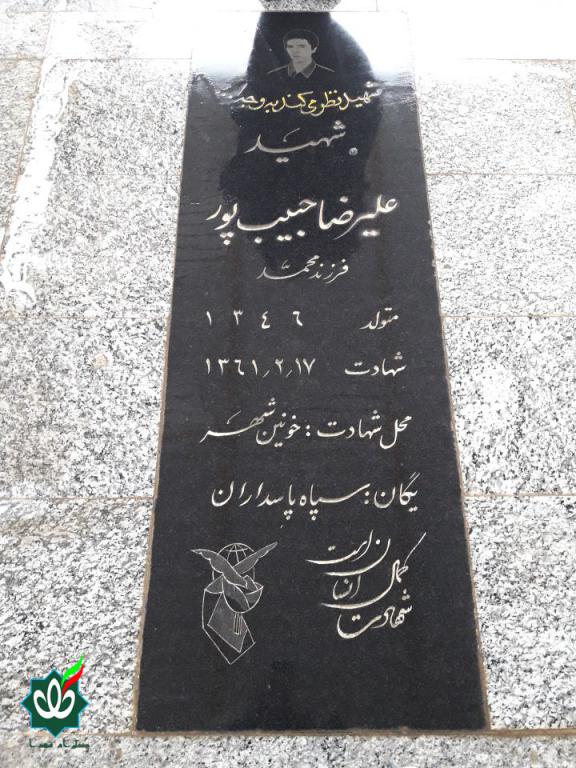 شهید نظر می کند به وجه
شهید
علیرضا حبیب پور
فرزند محمّد
متولد ١٣٤٦
شهادت ١٣٦١٫٢٫١٧
محل شهادت : خونین شهر
یگان : سپاه پاسداران
شهادت
کمال
انسان است